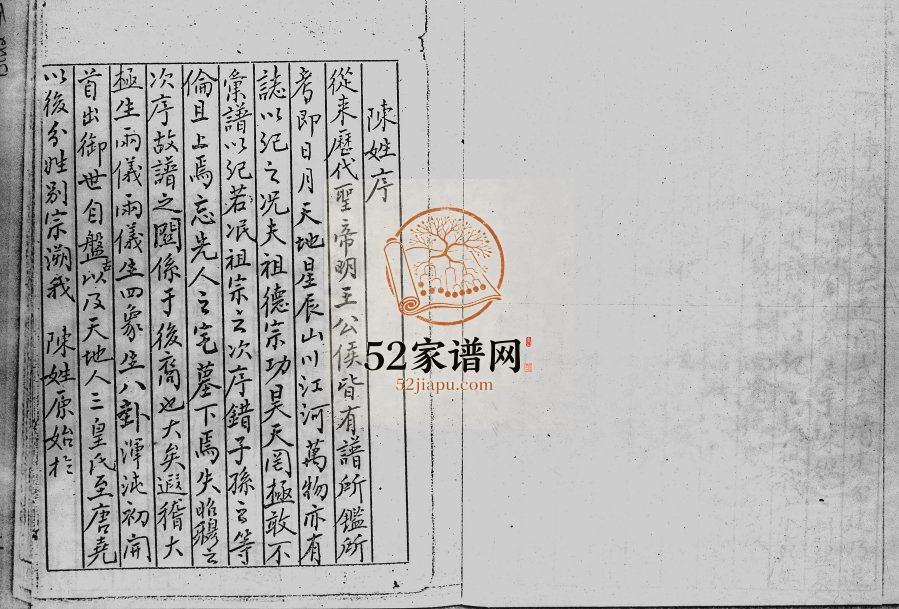 陳姓序
從来歷代聖帝明王公侯皆有譜所鑑所
考即日月天地星辰山川江河萬物亦有
誌以紀之况夫祖德宗功昊天罔極敢不
彙譜以紀若冺祖宗之次序錯子孫之等
倫且上焉忘先人之宅墓下焉失昭穆之
次序故譜之關係于後裔也大矣遐稽大
極生兩儀兩儀生四象生八卦渾沌初開
首出御世自盤古以及天地人三皇氏至唐堯
以後分姓别宗溯我 陳姓原始於
52家谱网
52jiapu.com